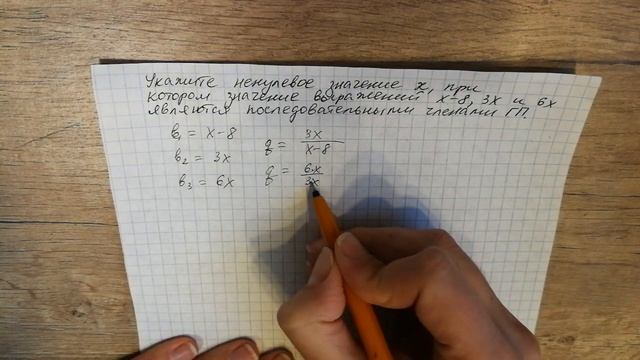 Укажите ненулевое значение x, при
котором значение выражений x-8, 3x и 6x
являются последовательными членами ГП.
b₁ = x-8
q = 3x / x-8
b₂ = 3x
q = 6x / 3x
b₃ = 6x